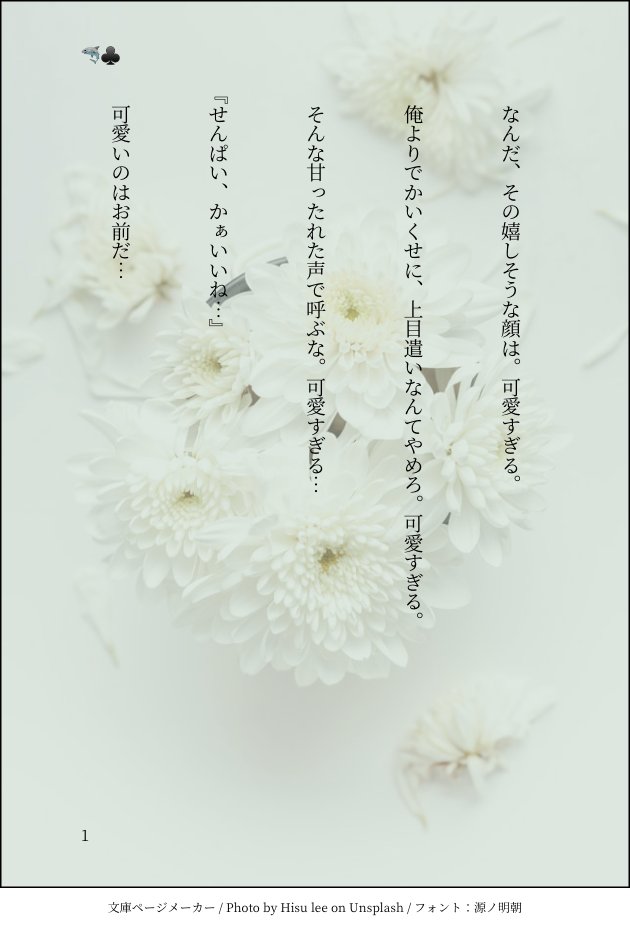 🦈♣
なんだ、その嬉しそうな顔は。可愛すぎる。
俺よりでかいくせに、上目遣いなんてやめろ。可愛すぎる。
そんな甘ったれた声で呼ぶな。可愛すぎる…
『せんぱい、かぁいいね…』
可愛いのはお前だ…
1
文庫ページメーカー / Photo by Hisu lee on Unsplash / フォント：源ノ明朝